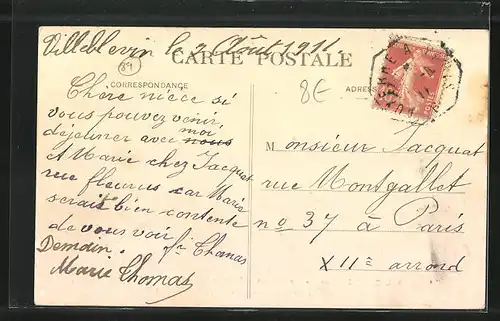 Villeblevin le 2 Août 1911.
CARTE POSTALE
89
CORRESPONDANCE
ADRES
8€
Chère niece si
vous pouvez venir
déjeuner avec nous moi
et Marie chez Jacquat
rue fleurus car Marie
serait bien contente
de vous voir fie Thomas
Demain.
Marie Thomas
Monsieur Jacquat
rue Montgallet
no 37 à Paris
XIIe arrond